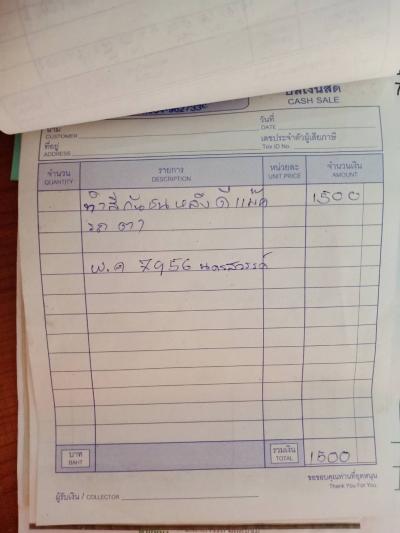 บิลเงินสด
CASH SALE
นาม
CUSTOMER
วันที่
DATE
ที่อยู่
ADDRESS
เลขประจำตัวผู้เสียภาษี
Tax ID No.
จำนวน
QUANTITY
รายการ
DESCRIPTION
หน่วยละ
UNIT PRICE
จำนวนเงิน
AMOUNT
ทำสีกันชนหลัง ดีแม็ค 1500
พ.ค 7956 นครสวรรค์
บาท
BAHT
รวมเงิน
TOTAL
1500
ขอขอบคุณท่านที่อุดหนุน
Thank You For You.
ผู้รับเงิน / COLLECTOR